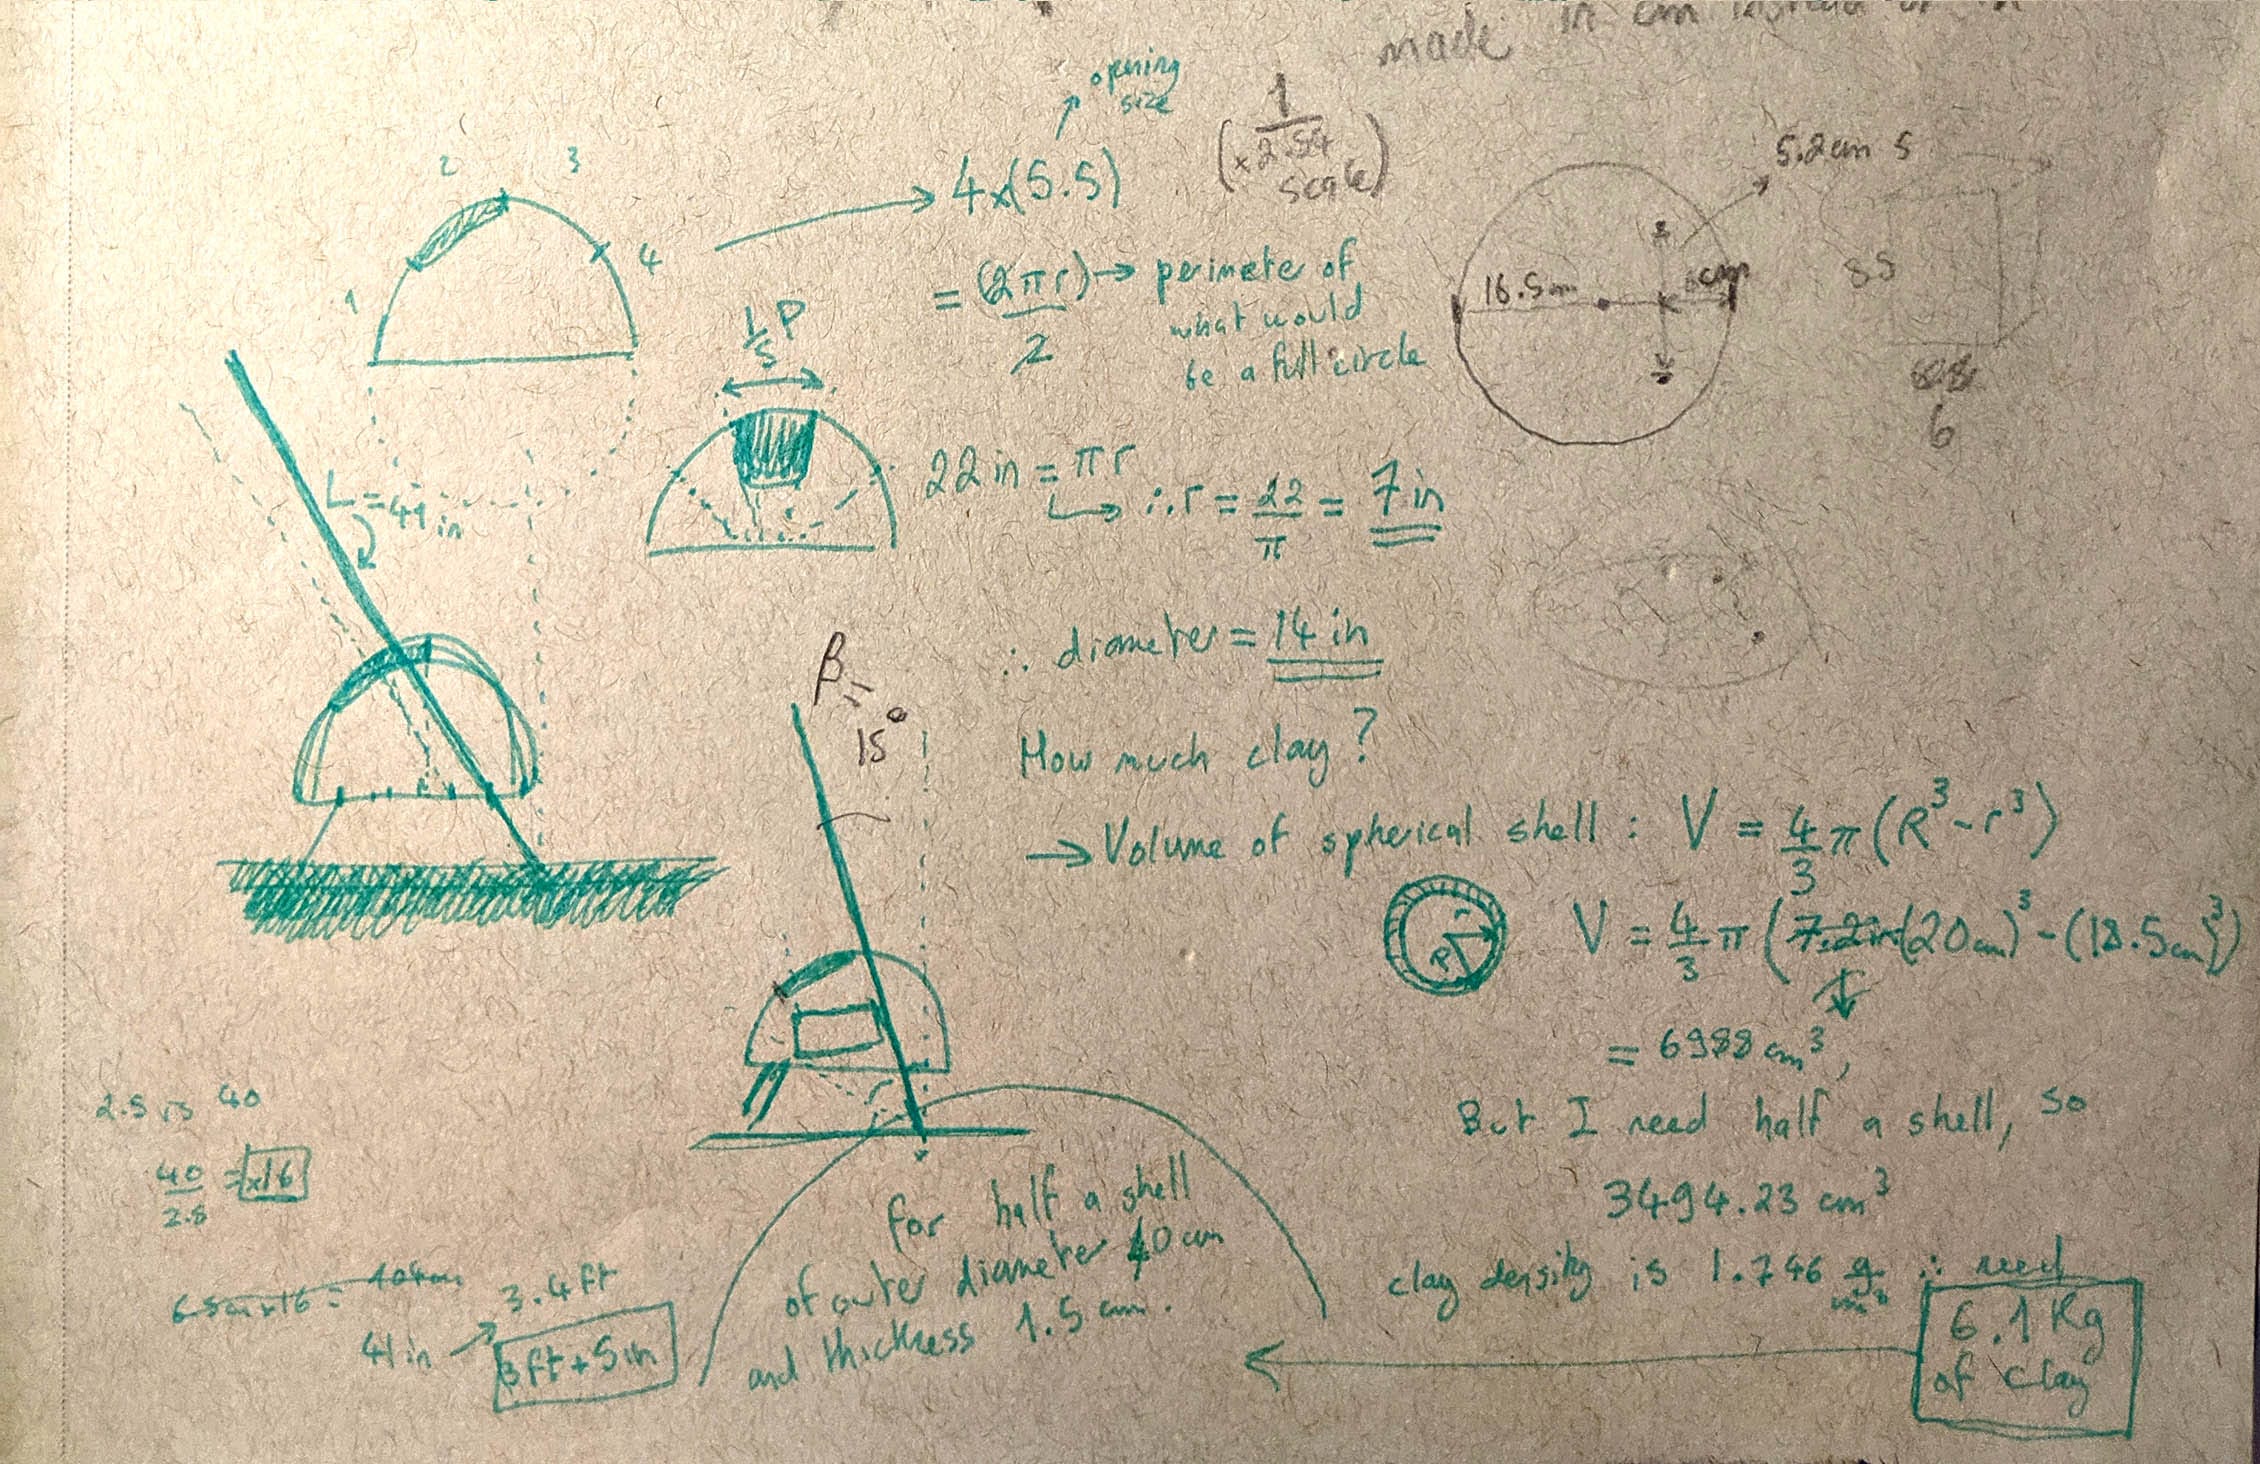 made in cm instead of in
opening
size
4x(5.5)
(x 1/2.54
scale)
= (2πr)/2 → perimeter of
what would
be a full circle
1
2
3
4
1/5 P
22 in = πr
∴ r = 22/π = 7 in
∴ diameter = 14 in
5.2cm
16.5cm
6
L = 41 in
β = 15°
How much clay?
→ Volume of spherical shell : V = 4/3 π (R³ - r³)
r
R
V = 4/3 π (7.2in (20cm)³ - (18.5cm)³)
= 6988 cm³,
But I need half a shell, so
3494.23 cm³
clay density is 1.746 g/cm³ ∴ need
6.1 Kg
of clay
for half a shell
of outer diameter 40 cm
and thickness 1.5 cm.
2.5 is 40
40/2.5 = x16
6.5cm x16 = 104cm
41 in
3.4 ft
3 ft + 5 in